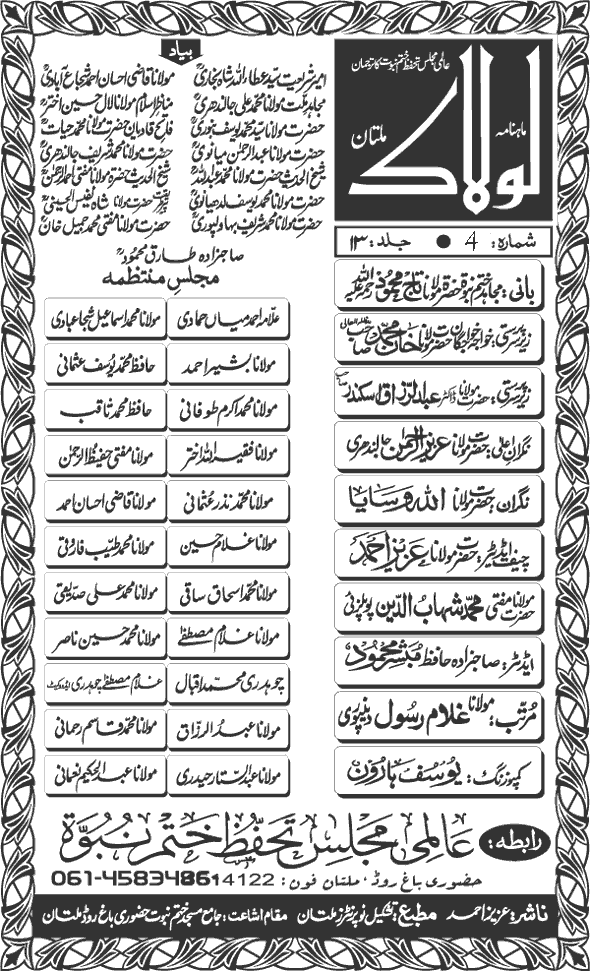 عالمی مجلس تحفظ ختم نبوت کا ترجمان
ماہنامہ
لولاک
ملتان
شمارہ: 4 ● جلد: ۱۳
بانی: مجاہد ختم نبوۃ حضرۃ مولانا تاج محمود رحمۃ اللہ علیہ
زیر سرپرستی: خواجہ خواجگان حضرت مولانا خان محمد صاحب
زیر سرپرستی: حضرت مولانا ڈاکٹر عبدالرزاق سکندر صاحب
نگران اعلیٰ: حضرت مولانا عزیز الرحمٰن جالندھری
نگران: حضرت مولانا اللہ وسایا
چیف ایڈیٹر: حضرت مولانا عزیز احمد
حضرت مولانا مفتی محمد شہاب الدین پوپلزئی
ایڈیٹر: صاحبزادہ حافظ مبشر محمود
مرتب: مولانا غلام رسول دینپوری
کمپوزنگ: یوسف ہارون
بیاد
امیر شریعت سید عطاء اللہ شاہ بخاریؒ مولانا قاضی احسان احمد شجاع آبادیؒ
مجاہد ملت مولانا محمد علی جالندھریؒ مناظر اسلام مولانا لال حسین اخترؒ
حضرت مولانا سید محمد یوسف بنوریؒ فاتح قادیان حضرت مولانا محمد حیاتؒ
حضرت مولانا عبدالرحمٰن میانویؒ حضرت مولانا محمد شریف جالندھریؒ
شیخ الحدیث حضرت مولانا محمد عبداللہؒ شیخ الحدیث حضرۃ مولانا مفتی احمد الرحمٰنؒ
حضرت مولانا محمد یوسف لدھیانویؒ حضرت مولانا شاہ نفیس الحسینیؒ
حضرت مولانا محمد شریف بہاولپوریؒ حضرت مولانا مفتی محمد جمیل خانؒ
صاحبزادہ طارق محمودؒ
مجلس منتظمہ
علامہ احمد میاں حمادی مولانا محمد اسماعیل شجاعبادی
مولانا بشیر احمد حافظ محمد یوسف عثمانی
مولانا محمد اکرم طوفانی حافظ محمد ثاقب
مولانا فقیہ اللہ اختر مولانا مفتی حفیظ الرحمٰن
مولانا محمد نذر عثمانی مولانا قاضی احسان احمد
مولانا غلام حسین مولانا محمد طیب فاروقی
مولانا محمد اسحاق ساقی مولانا محمد علی صدیقی
مولانا غلام مصطفےٰ مولانا محمد حسین ناصر
چوہدری محمد اقبال غلام مصطفےٰ چوہدری ایڈووکیٹ
مولانا عبدالرزاق مولانا محمد قاسم رحمانی
مولانا عبدالستار حیدری مولانا عبدالحکیم نعمانی
رابطہ: عالمی مجلس تحفظ ختم نبوۃ
حضوری باغ روڈ، ملتان فون: 061-4583486
ناشر: عزیز احمد مطبع: تشکیل نو پرنٹرز ملتان مقام اشاعت: جامع مسجد ختم نبوت حضوری باغ روڈ ملتان